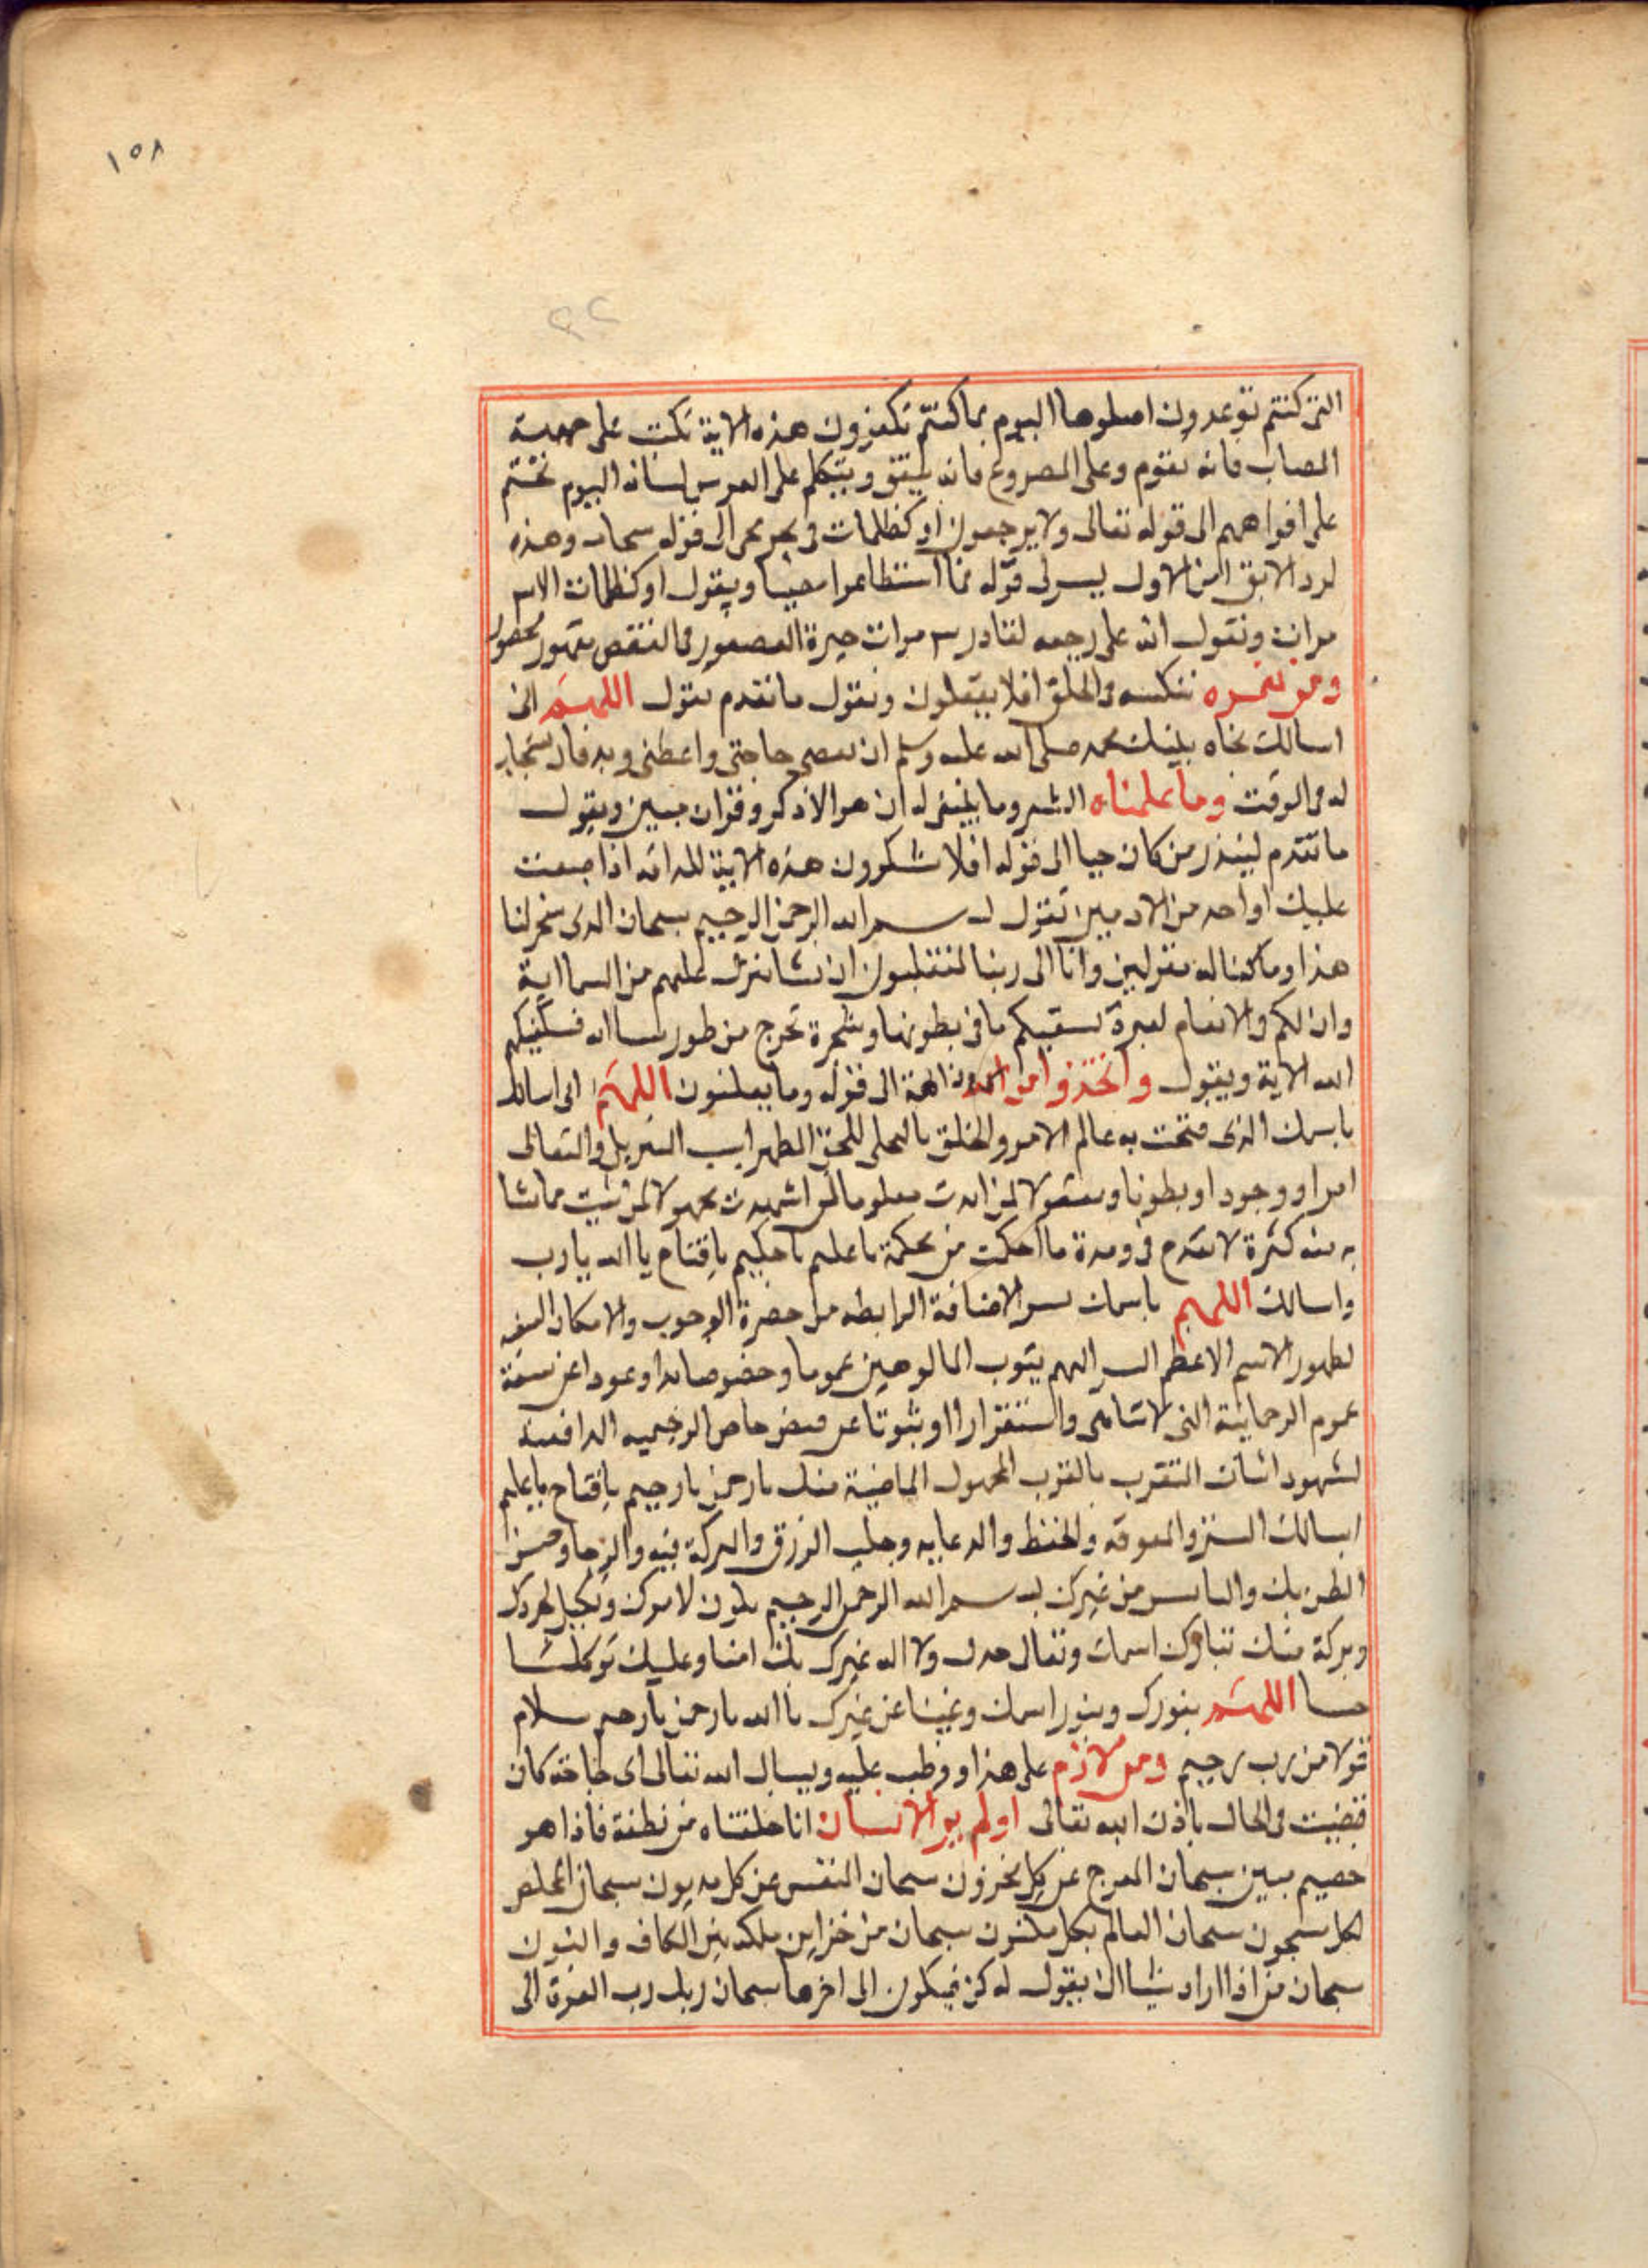 ١٥٨
٢٢
التى كنتم توعدون اصلوها اليوم بما كنتم تكفرون هذه الاية تكتب على جبهة
المصاب فانه يقوم وعلى المصروع فانه يفيق ويتكلم على لسانه اليوم نختم
على افواههم الى قوله تعالى ولا يرجعون او كظلمات فى بحر لجى الى قوله سحاب وهذه
لرد الابق الاول يسر الى قوله فما استطاعوا مضيا ويقول او كظلمات الاية
مرات وتقول انه على رجعه لقادر ٣ مرات العصفور فى القفص مقهور محصور
ومن نعمره ننكسه فى الخلق افلا يعقلون وتقول ما تقدم تقول اللهم انى
اسالك بجاه نبيك محمد صلى الله عليه وسلم ان تقضى حاجتى واعطنى فانه يستجاب
له فى الوقت وما علمناه الشعر وما ينبغى له ان هو الا ذكر وقران مبين ويقول
ما تقدم لينذر من كان حيا الى قوله افلا يشكرون هذه الاية اذا صعبت
عليك او احد من الادميين تقول بسم الله الرحمن الرحيم سبحان الذى سخر لنا
هذا وما كنا له مقرنين وانا الى ربنا لمنقلبون ان نشا ننزل عليهم من السما اية
وان لكم فى الانعام لعبرة نسقيكم مما فى بطونها وشجرة تخرج من طور سينا فسيكفيكهم
الله الاية ويقول واتخذوا من دون الله الهة الى قوله وما يعلنون اللهم انى اسالك
باسمك الذى فتحت به عالم الامر والخلق بالتجلى والتعالى
امرا ووجودا وبطونا معلوما لمن اشهدت مجهولا لمن شيت مما تشا
به منه كثرة ما احكمت من حكمة يا عليم يا حكيم يا فتاح يا الله يا رب
واسالك اللهم باسمك سر الاضافة الرابطة من حضرة الوجوب والامكان
لظهور الاسم الاعظم المالوهين عموما وخصوصا وعودا عن سعة
عموم الرحمانية التى لا تتناهى واستقرارا وثبوتا عن فيض خاص الرحيمية
لشهود اثبات التقرب بالقرب منك يا رحمن يا رحيم يا فتاح يا عليم
اسالك الستر والحفظ وجلب الرزق والبركة فيه والرجا وحسن
الظن بك والياس من غيرك بسم الله الرحمن الرحيم
وبركة منك تبارك اسمك وتعالى جدك ولا اله غيرك بك امنا وعليك توكلنا
اللهم بنورك وبنور اسمك وغيبنا عن غيرك يا الله يا رحمن يا رحيم سلام
قولا من رب رحيم ومن لازم على هذا ووظب عليه ويسال الله تعالى اى حاجة كان
قضيت فى الحال باذن الله تعالى اولم ير الانسان انا خلقناه من نطفة فاذا هو
خصيم مبين سبحان المفرج عن كل محزون سبحان المنفس عن كل مديون سبحان المخلص
لكل مسجون سبحان العالم بكل مكنون سبحان من خزاين ملكه بين الكاف والنون
سبحان من اذا اراد شيا ان يقول له كن فيكون الى اخرها سبحان ربك رب العزة الى